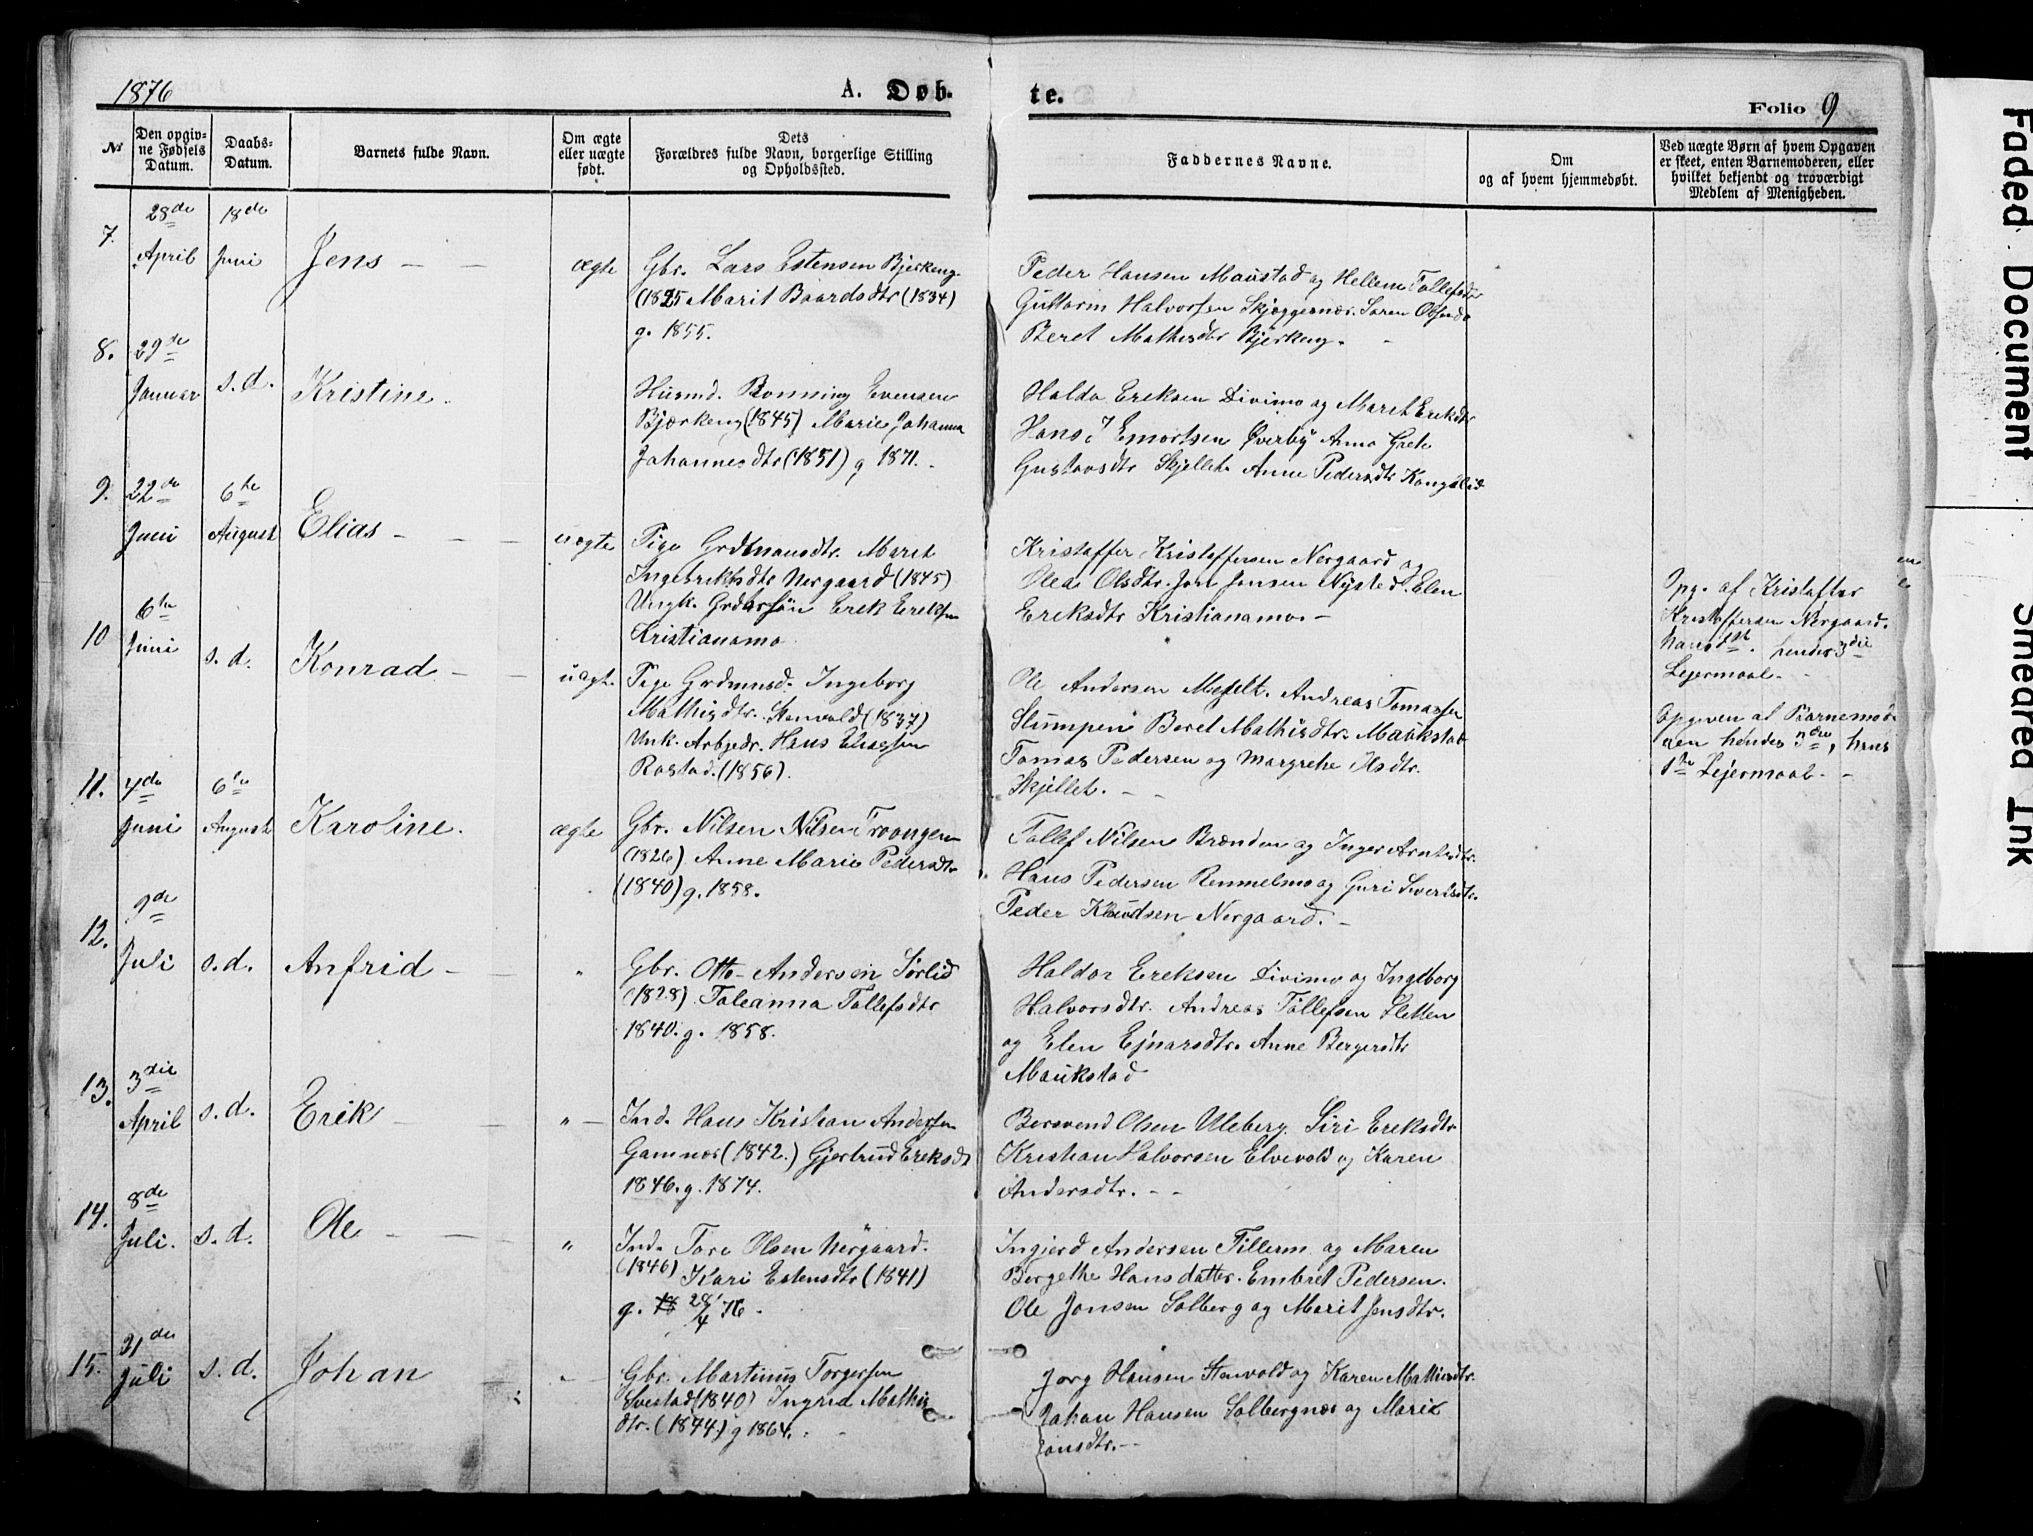 1876
A. Døb-
te.
Folio 9
№
Den opgiv-
ne Fødsels
Datum.
Daabs-
Datum.
Barnets fulde Navn.
Om ægte
eller uægte
født.
Dets
Forældres fulde Navn, borgerlige Stilling
og Opholdssted.
Faddernes Navne.
Om
og af hvem hjemmedøbt.
Ved uægte Børn af hvem Opgaven
er skeet, enten Barnemoderen, eller
hvilket bekjendt og troværdigt
Medlem af Menigheden.
7.
28de
April
18de
Juni
Jens
ægte
Gbr. Lars Estensen Bjerkeng
(1825 Marit Baardsdtr (1834)
g. 1855.
Peder Hansen Maustad og Hellene Tollefsdtr
Guttorm Halvorsen Skjæggesnæs. Søren Olsen
Beret Mathisdtr Bjerkeng.
8.
29de
Januar
s. d.
Kristine.
Husmd. Ronning Evensen
Bjærkeng (1845) Marie Johanna
Johannesdtr (1851) g 1871.
Haldo Eriksen Divimo og Maret Eriksdtr
Hans J Emortsen Øverby Anna Grete
Gustavsdtr Skjellet. Anne Pedersdtr Kongslid
9.
22de
Juni
6te
August
Elias
uægte
Pige Grdmansdtr. Maret
Ingebriktsdtr Nergaard (1845)
Ungk. Grdbrsøn Erek Ereksen
Kristianamo
Kristoffer Kristoffersen Nergaard og
Olea Olsdtr. Jon Jonsen Nysted. Elen
Ereksdtr Kristianamo. –
Opg. af Kristoffer
Kristoffersen Nergaard.
hans 1st. hendes 3die
Lejermaal.
10
6te
Juni
s. d.
Konrad
uægt.
Pige Grdmnsd. Ingeborg
Mathisdtr. Stenvold (1837)
Unk. Arbjedr. Hans Eliasen
Rostad. (1856).
Ole Andersen Moselt. Andreas Tomassen
Slumpen Beret Mathisdtr. Maukstad
Tomas Pedersen og Margrehe Olsdtr.
Skjellet.
Opgeven af Barnemod-
ren hendes 3die, hans
1te Lejermaal.
11.
4de
Juni
6te
August
Karoline.
ægte
Gbr. Nilsen Nilsen Troongen
(1826) Anne Marie Pedersdtr
(1840) g. 1858.
Tollef Nilsen Brænden og Inger Arntsdtr.
Hans Pedersen Remmelmo og Guri Sivertsdtr.
Peder Knudsen Nergaard. –
12.
9de
Juli
s. d.
Anfrid
"
Gbr. Otto Andersen Sørlid
(1828) Taleanna Tollefsdtr
1840. g. 1858.
Haldor Ereksen Divimo og Ingeborg
Halvorsdtr. Andreas Tollefsen Sletten
og Elen Ejnarsdtr. Anne Bergersdtr
Maukstad
13.
3die
April
s. d.
Erik
"
Ind. Hans Kristian Andersen
Gamnæs (1842.) Gjertrud Ereksdt
1846. g. 1874.
Bersvend Olsen Uleberg. Siri Ereksdtr
Kristian Halvorsen Elvevold og Karen
Andersdtr.
14.
8de
Juli.
s. d.
Ole
"
Ind. Tore Olsen Nergaard.
(1846) Kari Estensdtr (1841)
g. 28/4 76.
Ingjerd Andersen Fillerm og Maren
Bergethe Hansdatter. Embret Pedersen.
Ole Jonsen Solberg og Marit Jensdtr.
15.
31de
Juli
s. d.
Johan
"
Gbr. Martinus Torgersen
Evestad (1840) Ingrid Mathis
dtr. (1844) g 1864.
Jorg Hansen Stenvold og Karen Mathisdtr.
Johan Hansen Solbergnæs og Marie
Jonsdtr. –
Faded Document
Smeared Ink